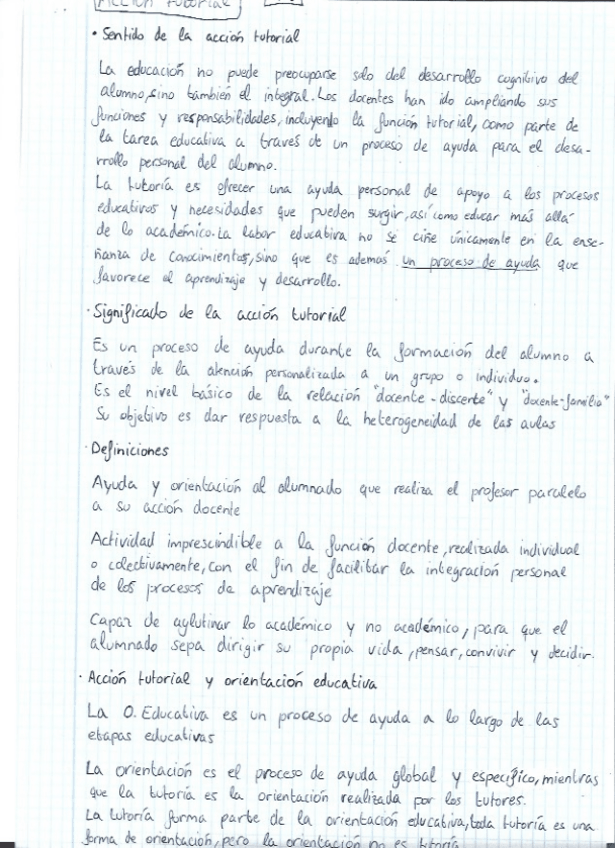 Acción tutorial
· Sentido de la acción tutorial
La educación no puede preocuparse solo del desarrollo cognitivo del
alumno, sino también el integral. Los docentes han ido ampliando sus
funciones y responsabilidades, incluyendo la función tutorial, como parte de
la tarea educativa a través de un proceso de ayuda para el desa-
rrollo personal del alumno.
La tutoría es ofrecer una ayuda personal de apoyo a los procesos
educativos y necesidades que pueden surgir, así como educar más allá
de lo académico. La labor educativa no se ciñe únicamente en la ense-
ñanza de conocimientos, sino que es además un proceso de ayuda que
favorece el aprendizaje y desarrollo.
· Significado de la acción tutorial
Es un proceso de ayuda durante la formación del alumno a
través de la atención personalizada a un grupo o individuo.
Es el nivel básico de la relación "docente-discente" y "docente-familia"
Su objetivo es dar respuesta a la heterogeneidad de las aulas
· Definiciones
Ayuda y orientación al alumnado que realiza el profesor paralelo
a su acción docente
Actividad imprescindible a la función docente, realizada individual
o colectivamente, con el fin de facilitar la integración personal
de los procesos de aprendizaje
Capaz de aglutinar lo académico y no académico, para que el
alumnado sepa dirigir su propia vida, pensar, convivir y decidir.
· Acción tutorial y orientación educativa
La O. Educativa es un proceso de ayuda a lo largo de las
etapas educativas
La orientación es el proceso de ayuda global y específico, mientras
que la tutoría es la orientación realizada por los tutores.
La tutoría forma parte de la orientación educativa, toda tutoría es una
forma de orientación, pero la orientación no es tutoría